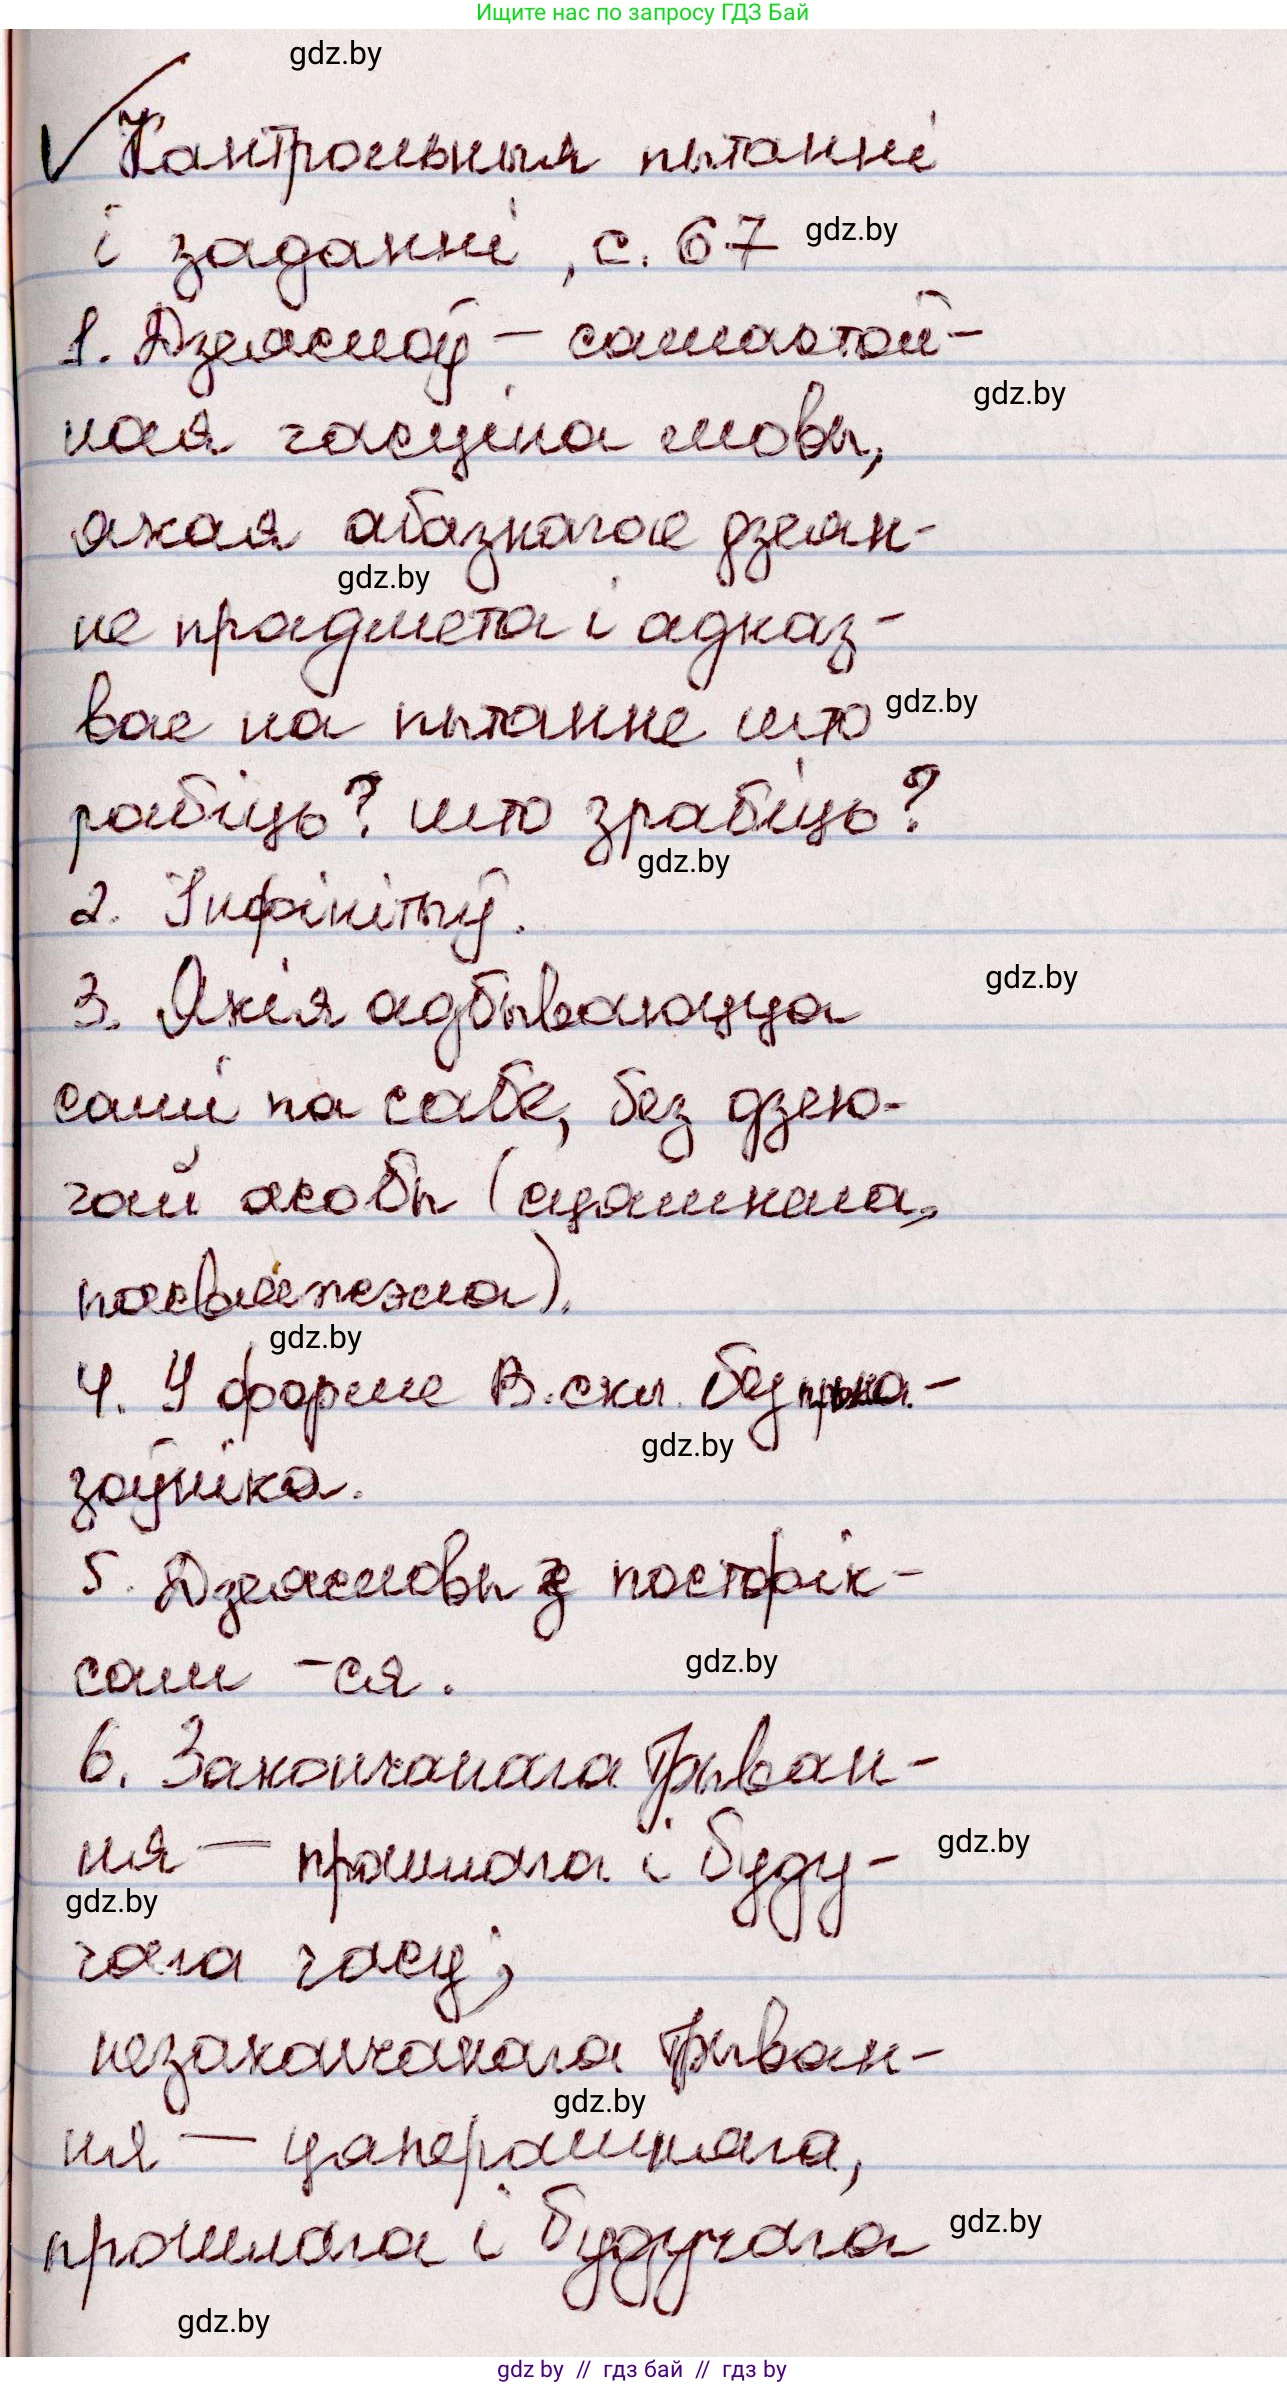 Ищите нас по запросу ГДЗ Бай
gdz.by
Кантрольныя пытанні
і заданні, с. 67 gdz.by
1. Дзеяслоў – самастой-
gdz.by
ная часціна мовы,
якая абазначае дзеян-
gdz.by
не прадмета і адказ-
вае на пытанне што gdz.by
рабіць? што зрабіць?
gdz.by
2. Інфінітыў.
gdz.by
3. Якія адбываюцца
самі па сабе, без дзею-
чай асобы (сцямнела,
пасвяжэла).
gdz.by
4. У форме В. скл. без прына-
gdz.by
зоўніка.
5. Дзеясловы з постфік-
самі -ся. gdz.by
6. Закончанага трыван-
ня – прошлага і буду- gdz.by
gdz.by
чага часу;
незакончанага трыван-
gdz.by
ня – цяперашняга,
прошлага і будучага gdz.by
gdz.by
gdz by // гдз бай // гдз by